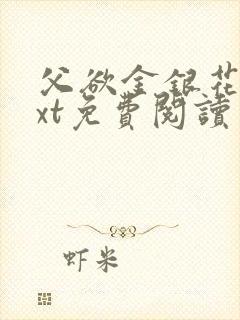 父欲金銀花
xt免費閱讀
虾米